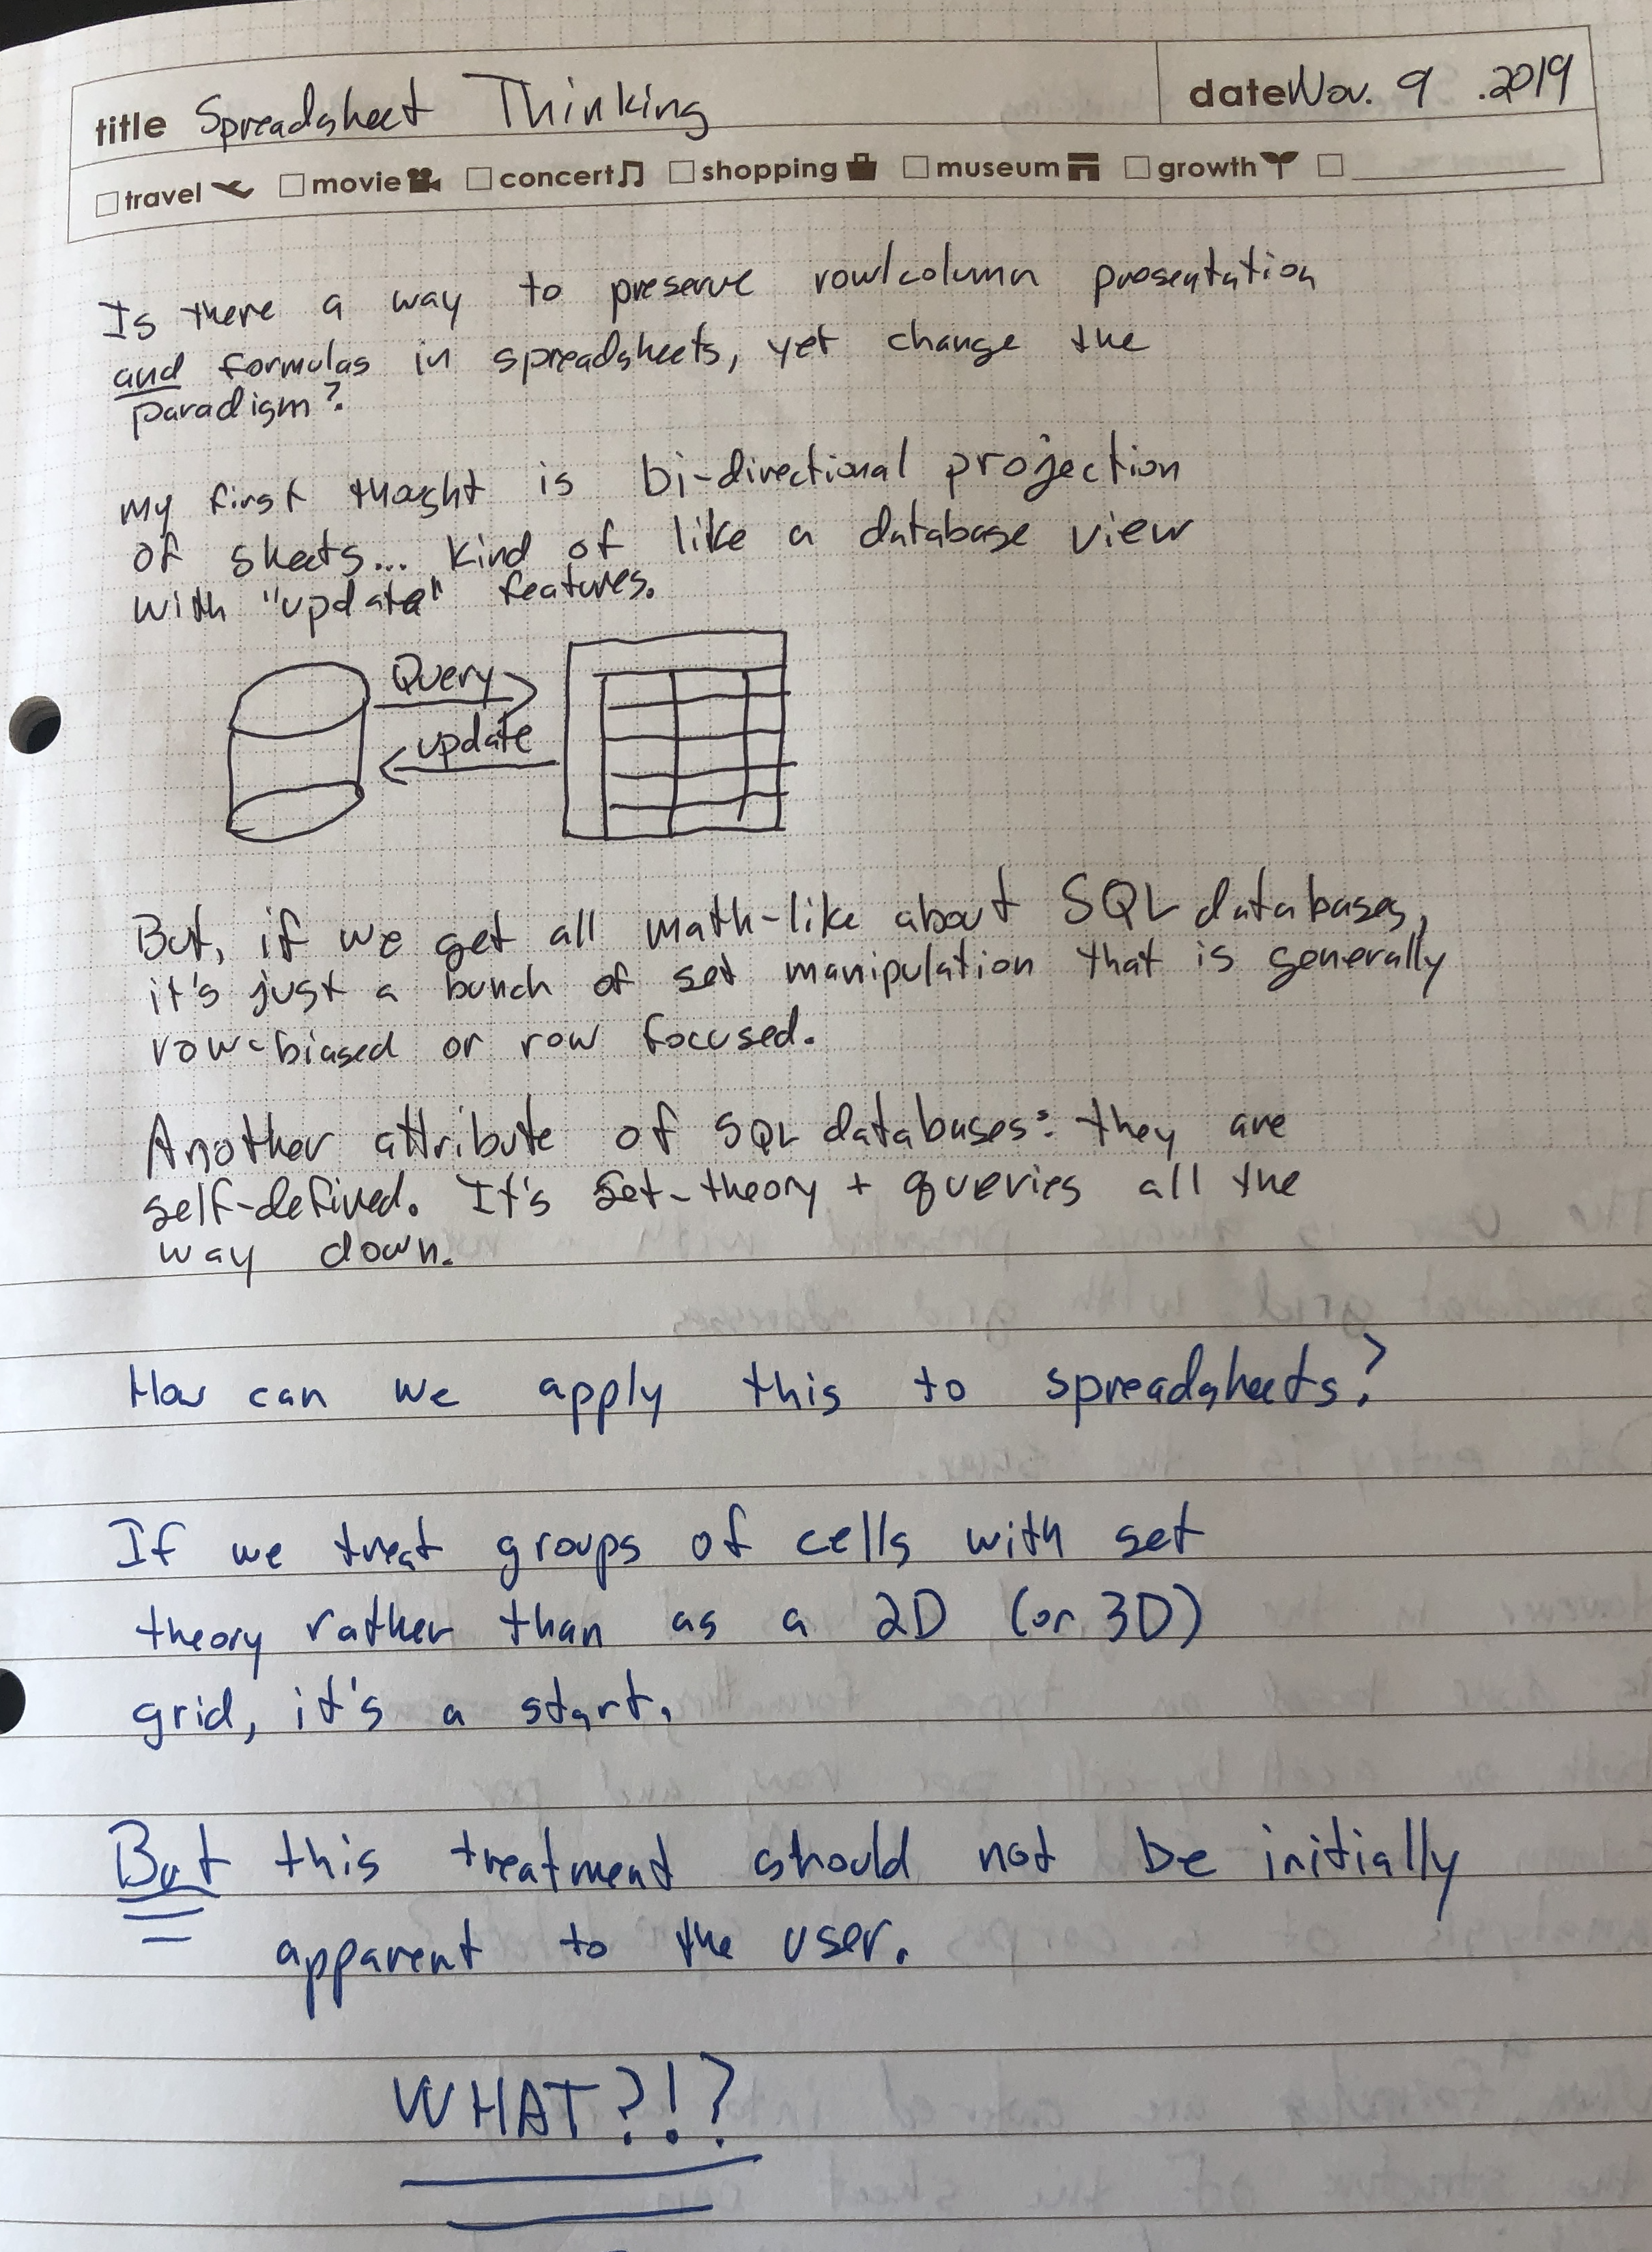 title Spreadsheet Thinking
date Nov. 9 .2019
travel movie concert shopping museum growth
Is there a way to preserve row/column presentation
and formulas in spreadsheets, yet change the
paradigm?
My first thought is bi-directional projection
of sheets... kind of like a database view
with "update" features.
Query
update
But, if we get all math-like about SQL databases,
it's just a bunch of set manipulation that is generally
row-biased or row focused.
Another attribute of SQL databases: they are
self-defined. It's set-theory + queries all the
way down.
How can we apply this to spreadsheets?
If we treat groups of cells with set
theory rather than as a 2D (or 3D)
grid, it's a start.
But this treatment should not be initially
apparent to the user.
WHAT?!?